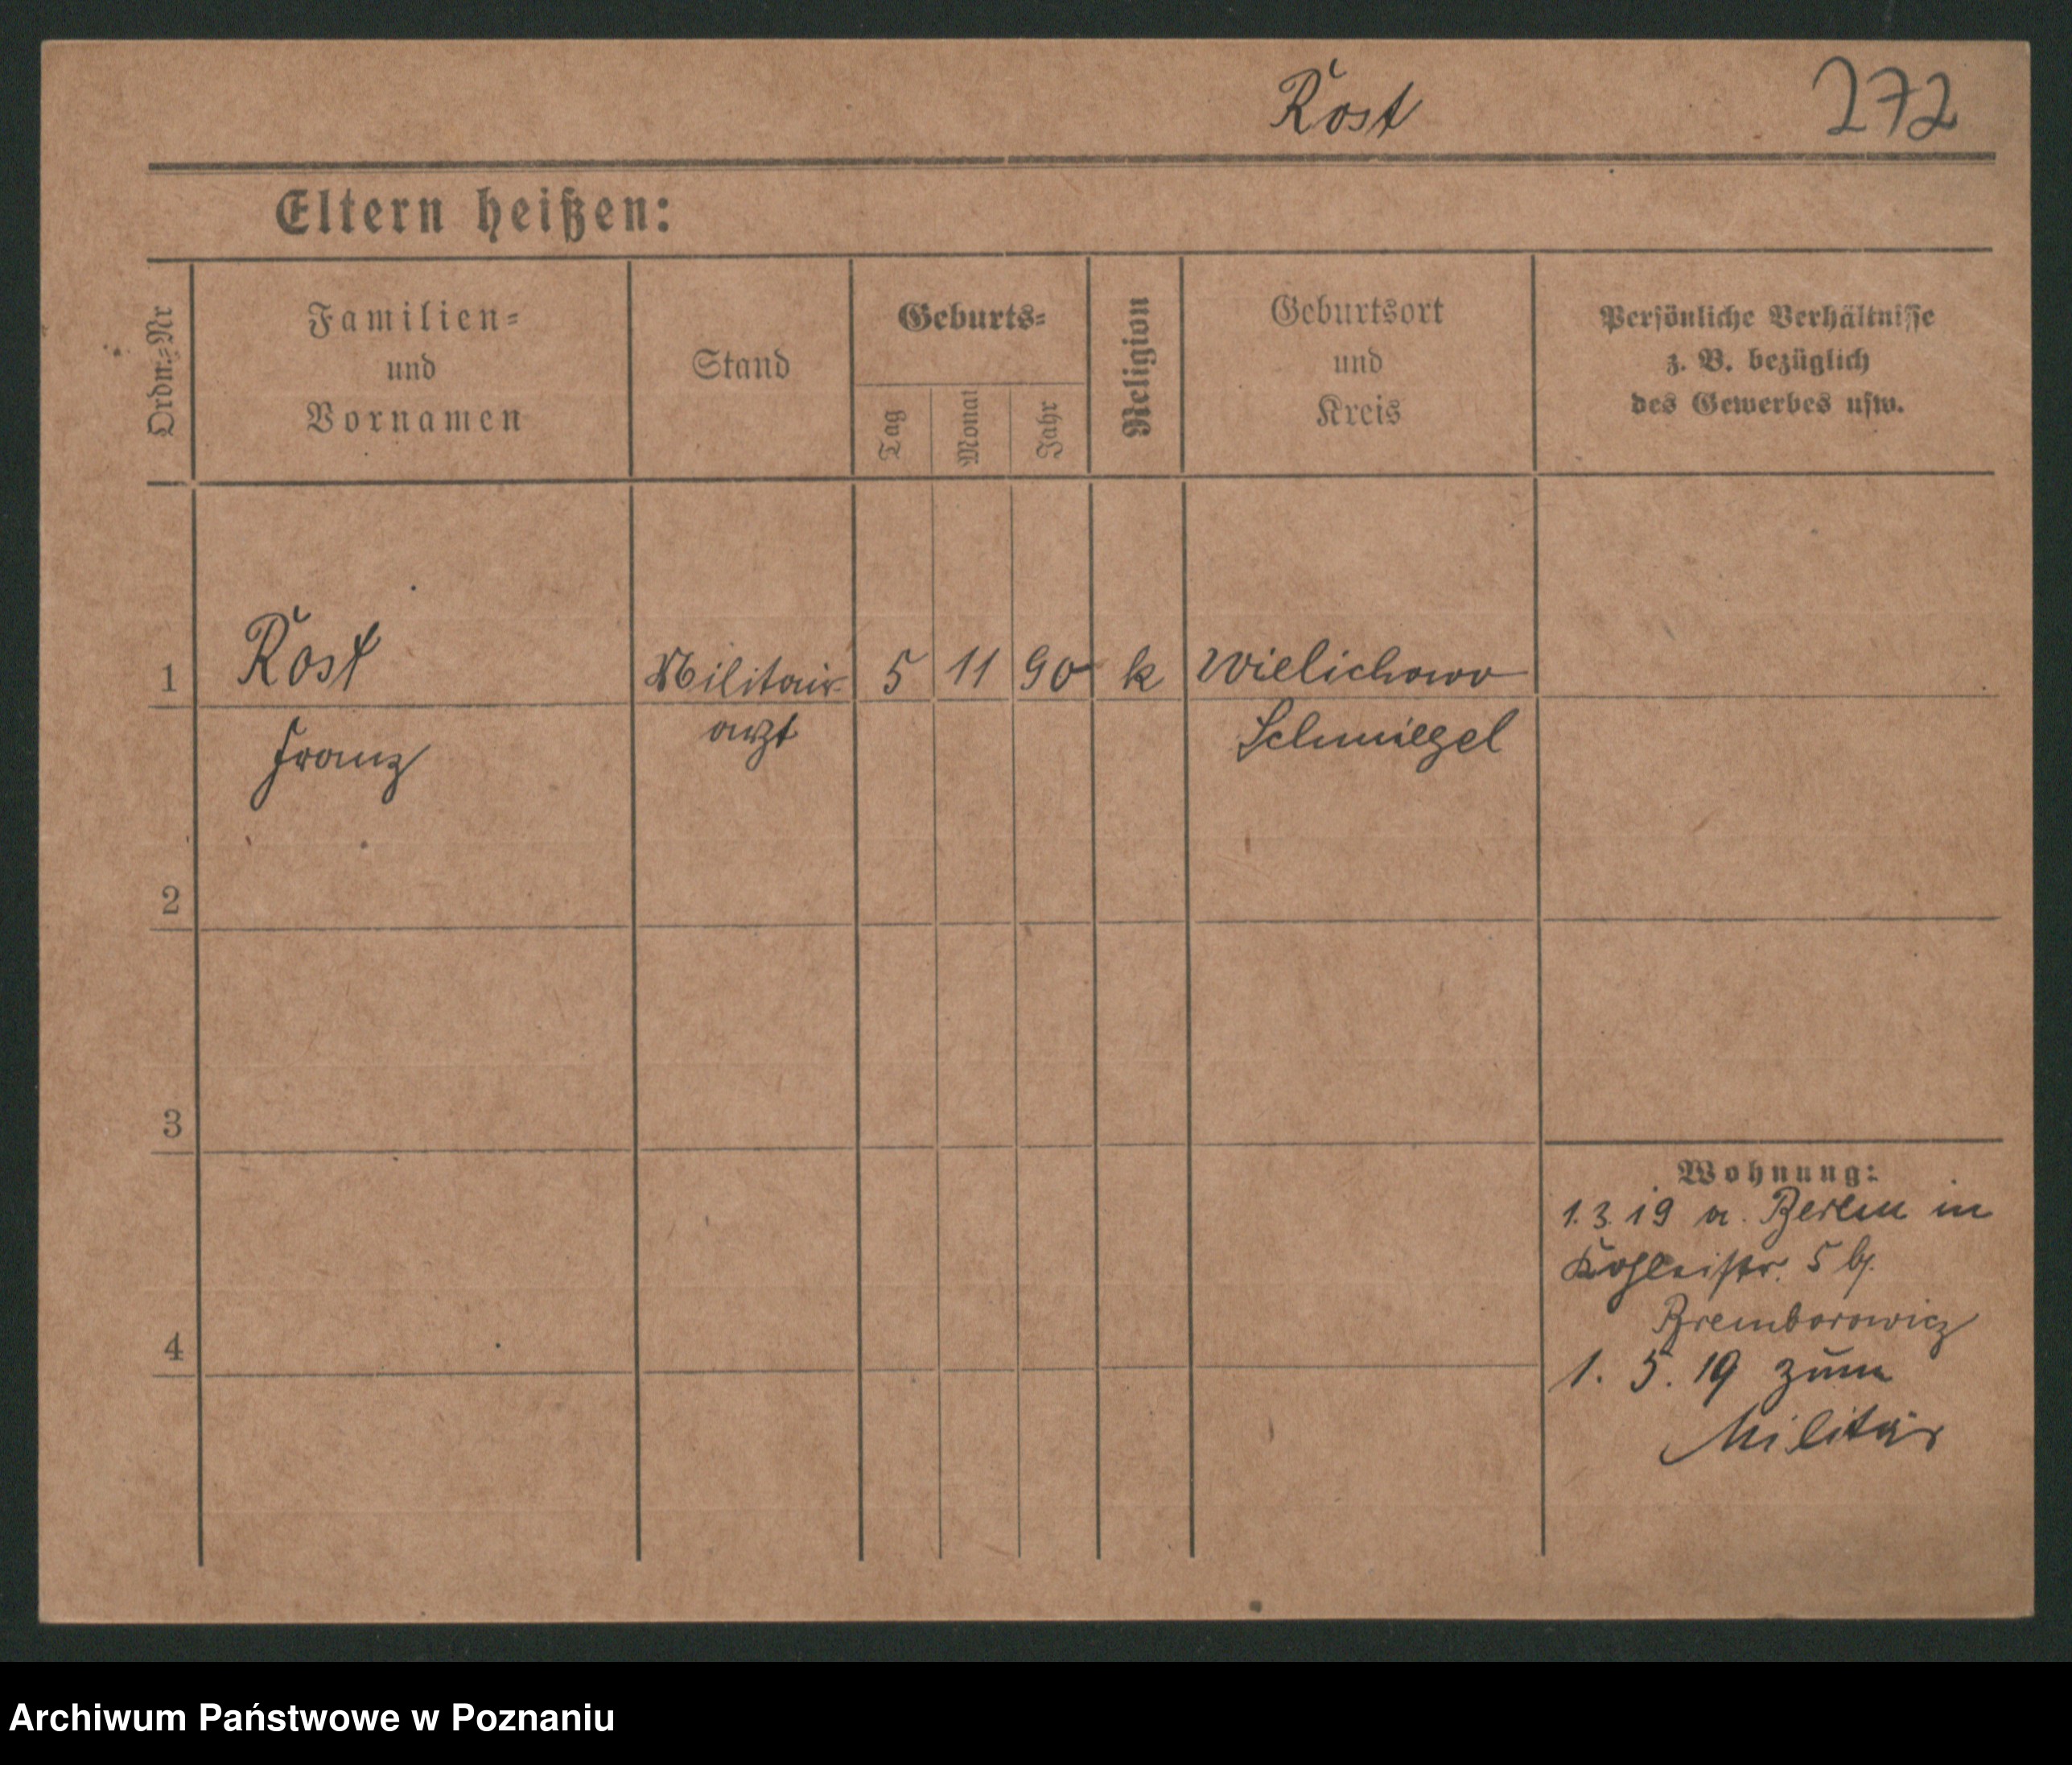 Rost 272
Eltern heißen:
Ordn.-Nr
Familien-
und
Vornamen
Stand
Geburts-
Tag
Monat
Jahr
Religion
Geburtsort
und
Kreis
Persönliche Verhältnisse
z. B. bezüglich
des Gewerbes usw.
1 Rost Militair 5 11 90 k Wielichowo
Franz arzt Schmiegel
2
3
Wohnung:
1.3.19 v. Berlin in
5 b/.
Bremborowicz
4
1. 5. 19 zum
Militär
Archiwum Państwowe w Poznaniu